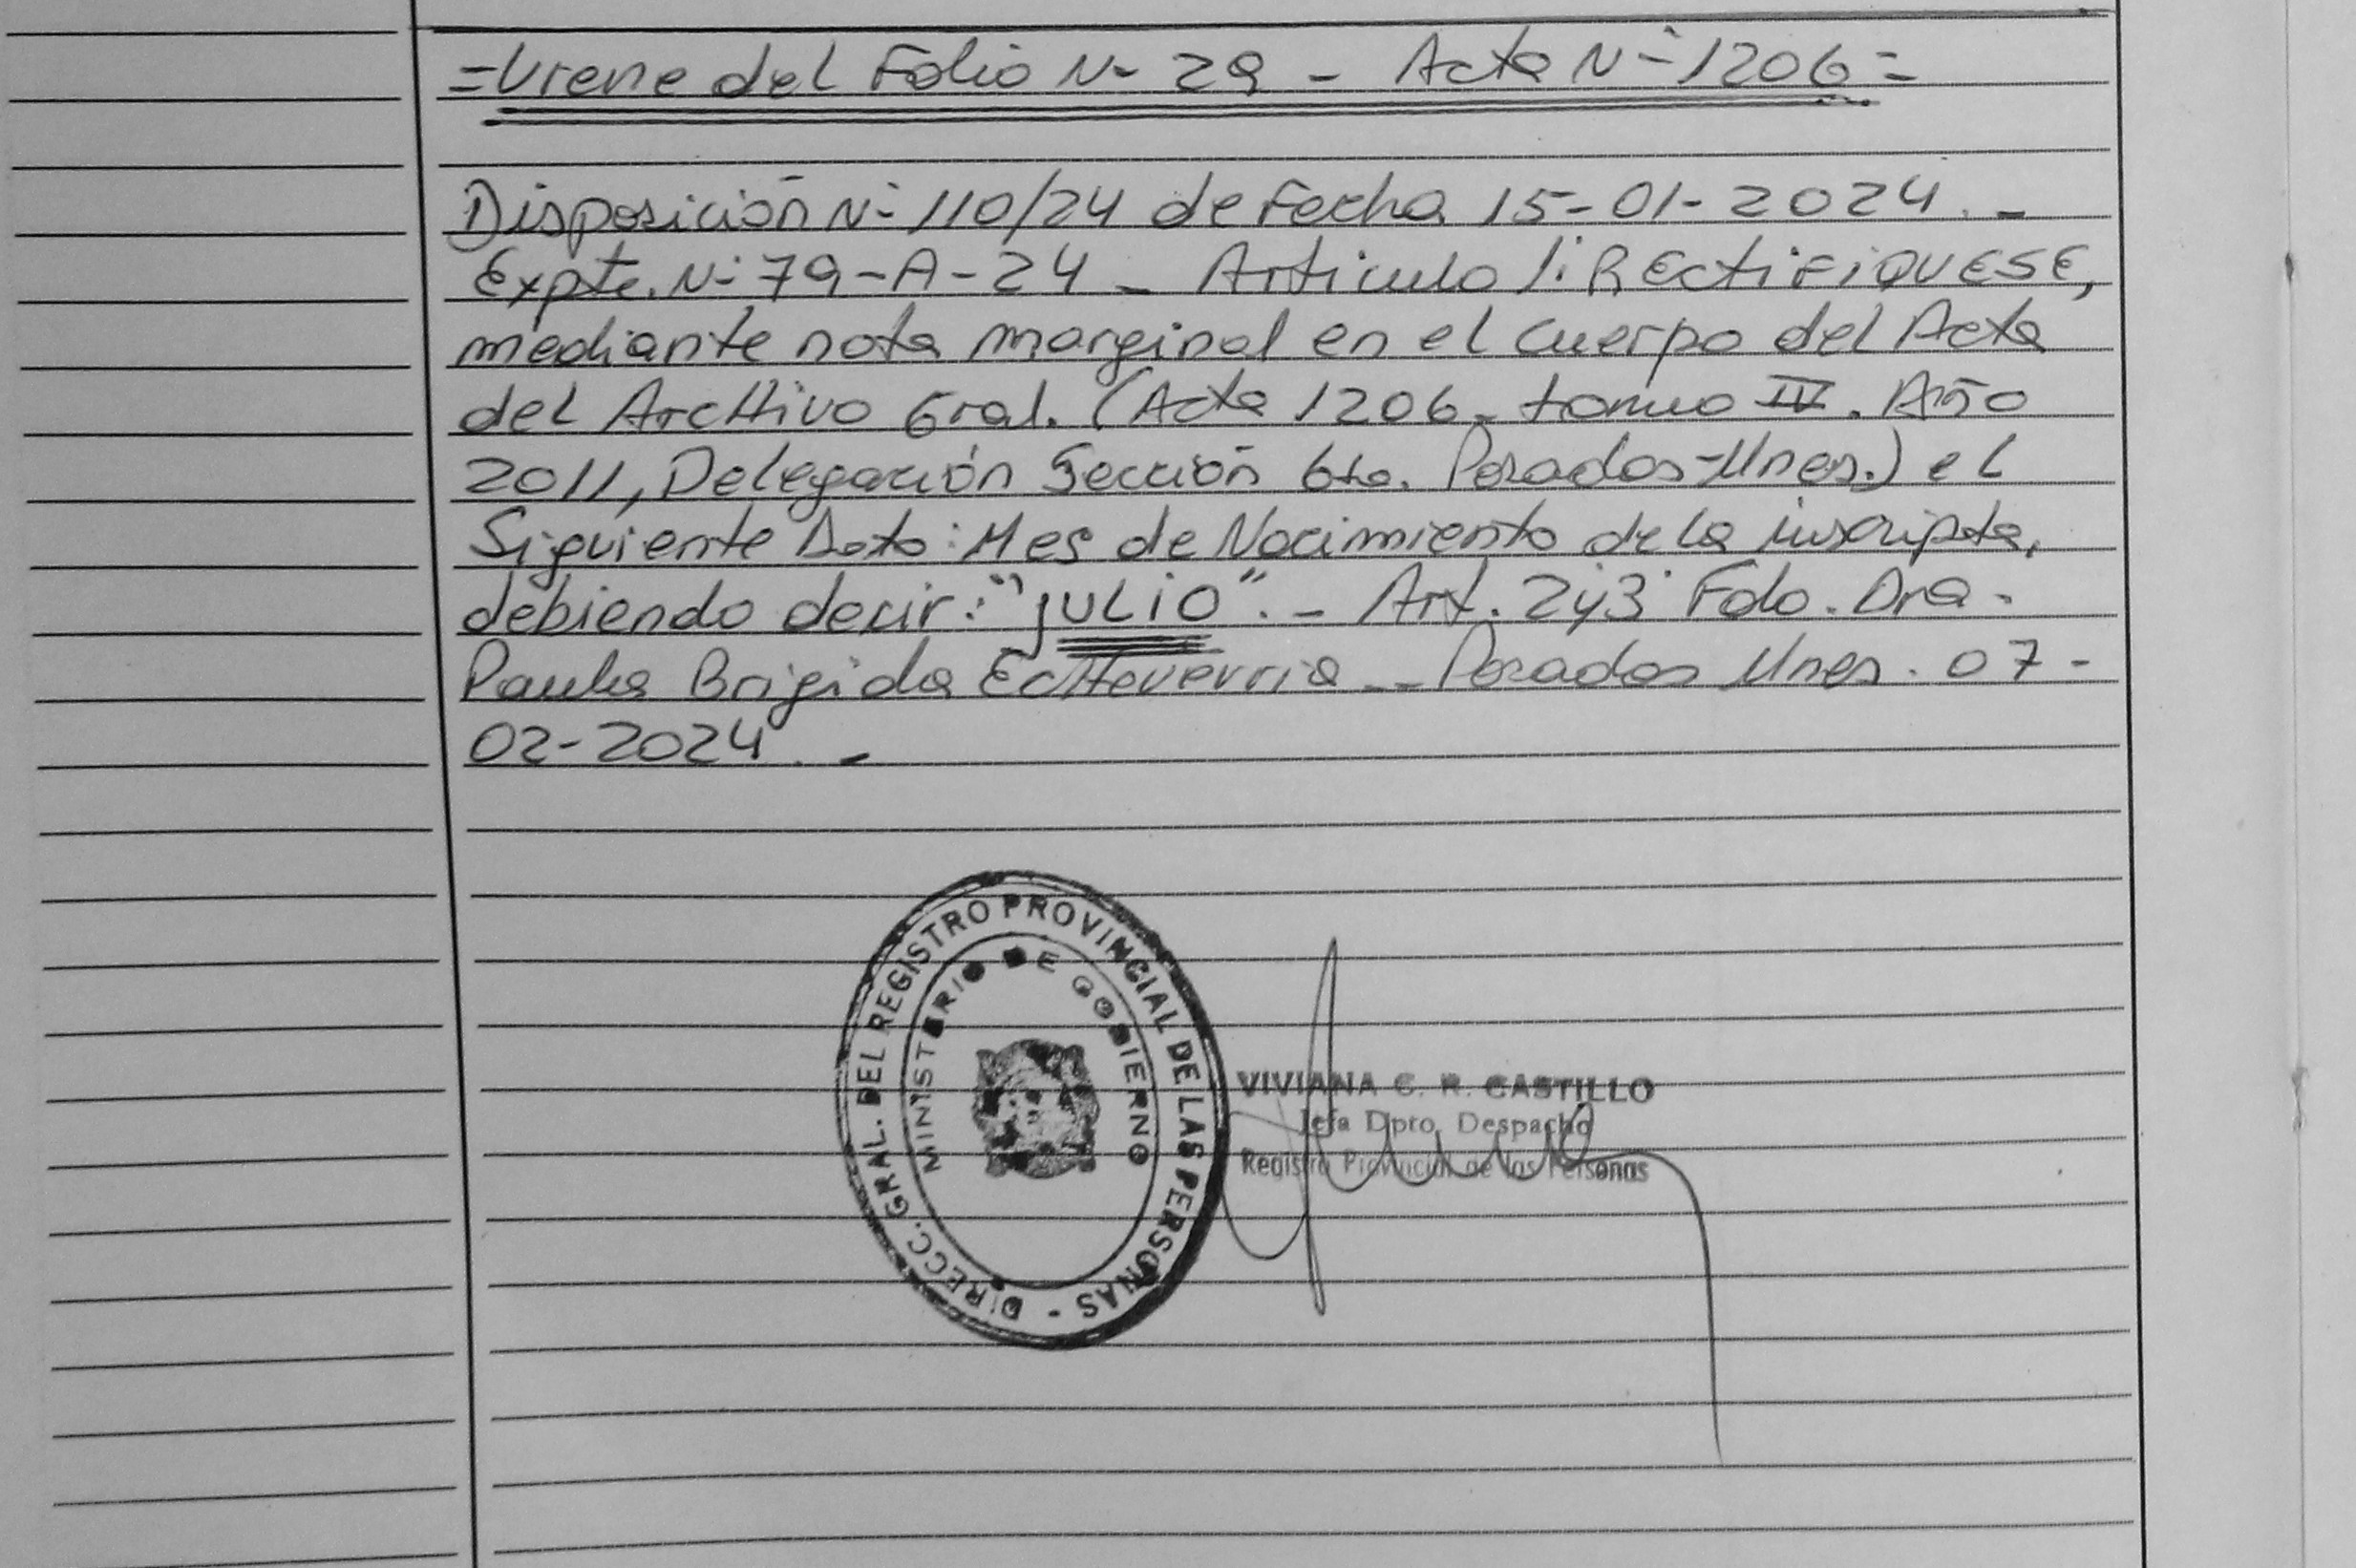 =Viene del Folio N- 29 - Acta N- 1206=
Disposición N- 110/24 de Fecha 15-01-2024.-
Expte. N- 79-A-24 - Articulo 1: RECTIFIQUESE,
mediante nota marginal en el cuerpo del Acta
del Archivo Gral. (Acta 1206- tomo IV. Año
2011, Delegación Sección 6ta. Posadas-Mnes.) el
Siguiente Dato: Mes de Nacimiento de la inscripta,
debiendo decir: "JULIO".- Art. 2y3 Fdo. Dra.
Paula Brigida Echeverria -- Posadas Mnes. 07-
02-2024.-
DIRECC. GRAL. DEL REGISTRO PROVINCIAL DE LAS PERSONAS -
MINISTERIO DE GOBIERNO
VIVIANA C. R. CASTILLO
Jefa Dpto. Despacho
Registro Provincial de las Personas